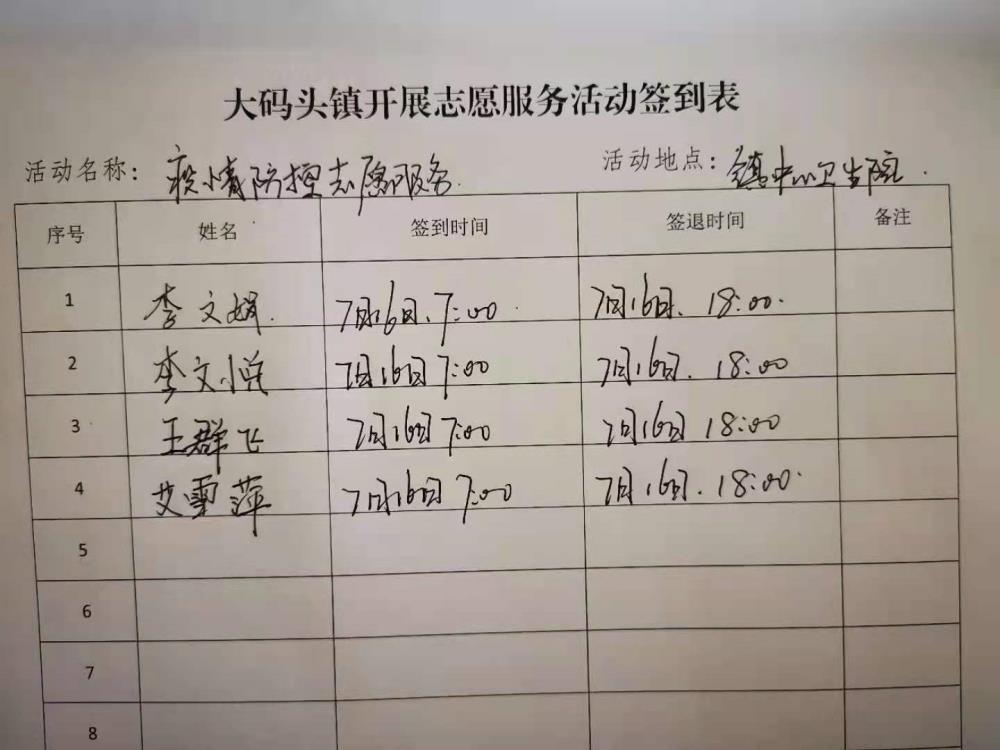 大码头镇开展志愿服务活动签到表
活动名称：疫情防控志愿服务 活动地点：镇中心卫生院
序号 姓名 签到时间 签退时间 备注
1 李文娟 7月16日、7:00 7月16日、18:00
2 李文悦 7月16日 7:00 7月16日、18:00
3 王群飞 7月16日 7:00 7月16日 18:00
4 艾雪萍 7月16日 7:00 7月16日、18:00
5
6
7
8